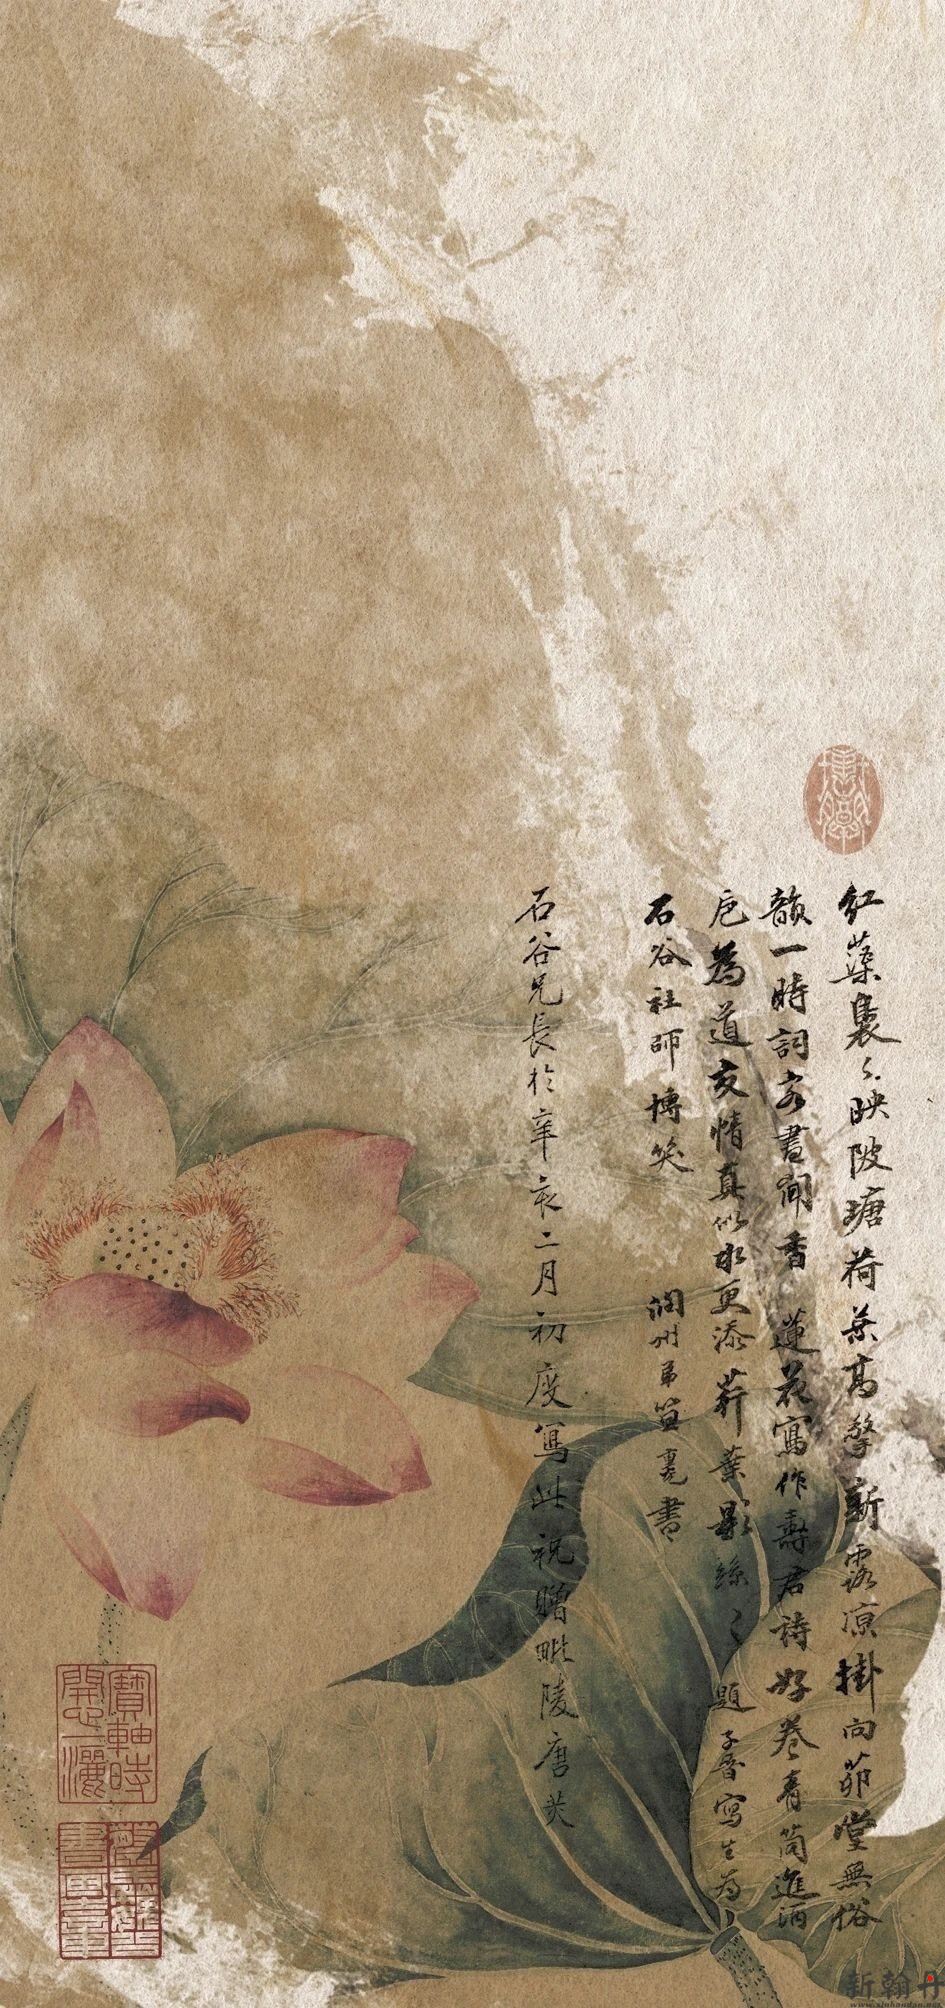 红蕖裊々映陂塘荷葉高擎新露凉掛向茆堂無俗
韻一時詞客畫聞香 蓮花寫作壽君詩好卷青筒進酒
巵為道交情真似水更添荇葉影絲々題子晋寫生為
石谷社師博笑
潤州弟笪重光書
石谷兄長於辛亥二月初度寫此祝贈毗陵唐炗
寶軸時
開心一灑
新翰丹